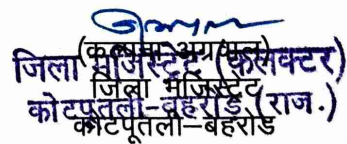 (कल्पना अग्रवाल)
जिला मजिस्ट्रेट (कलक्टर)
जिला मजिस्ट्रेट
कोटपूतली-बहरोड़ (राज.)
कोटपूतली-बेहरोड